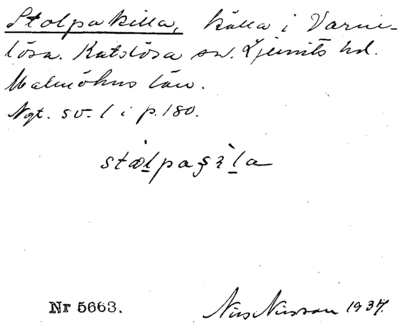 Stolpakilla, källa i Varni-
lösa. Katslösa sn. Ljunits hd.
Malmöhus län.
Ngt. sv. l i p. 180.
stælpaʂila
Nr 5663.
Nils Nilsson 1937.